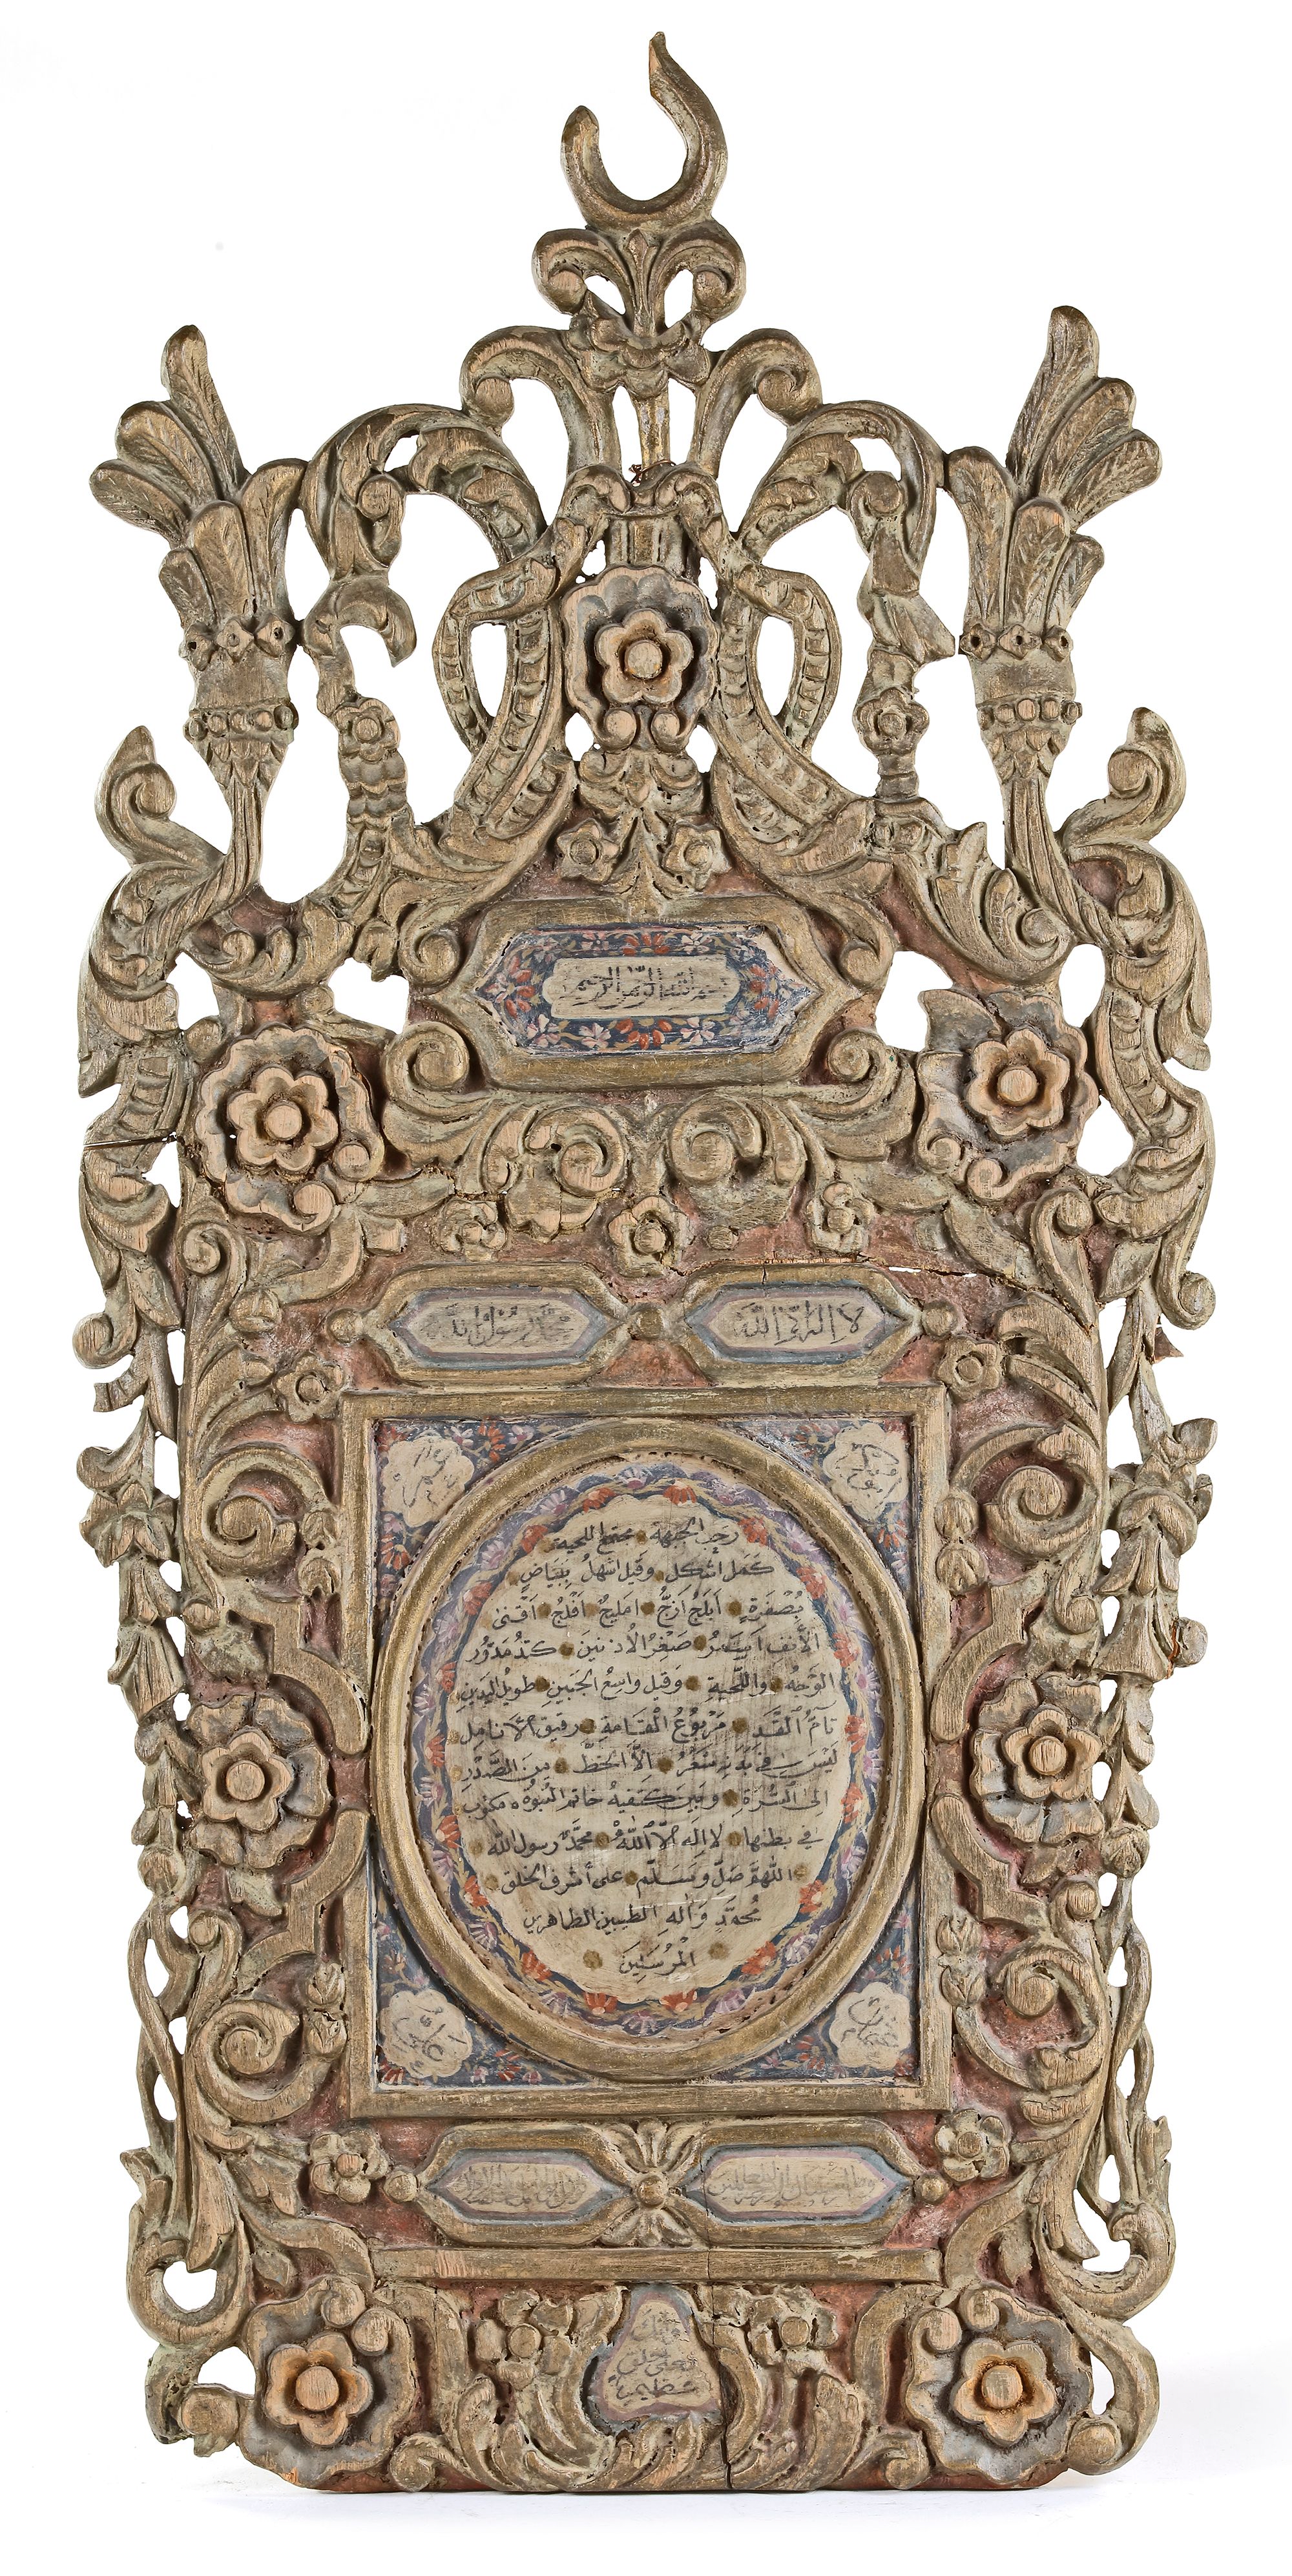 بسم الله الرحمن الرحيم
لا اله الا الله
محمد رسول الله
ابو بكر
عمر
رحب الجبهة مجتمع اللحية
كمل اشكل وقيل اشهل ببياض
بصفرة ابلج ازج املج افلج اقنى
الأنف اسمر صغير الاذنين كتد مدور
الوجه واللحية وقيل واسع الجبين طويل اليدين
تام القد مربوع القامة رقيق الانامل
ليس في بدنه شعر الا الخط بين الصدر
الى السرة وبين كتفيه خاتم النبوة مكتوب
في بطنها لا اله الا الله محمد رسول الله
اللهم صل وسلم على أشرف الخلق
محمد وآله الطيبين الطاهرين
المرسلين
عثمان
علي
وما ارسلناك الا رحمة للعالمين
وانك
لعلى خلق
عظيم